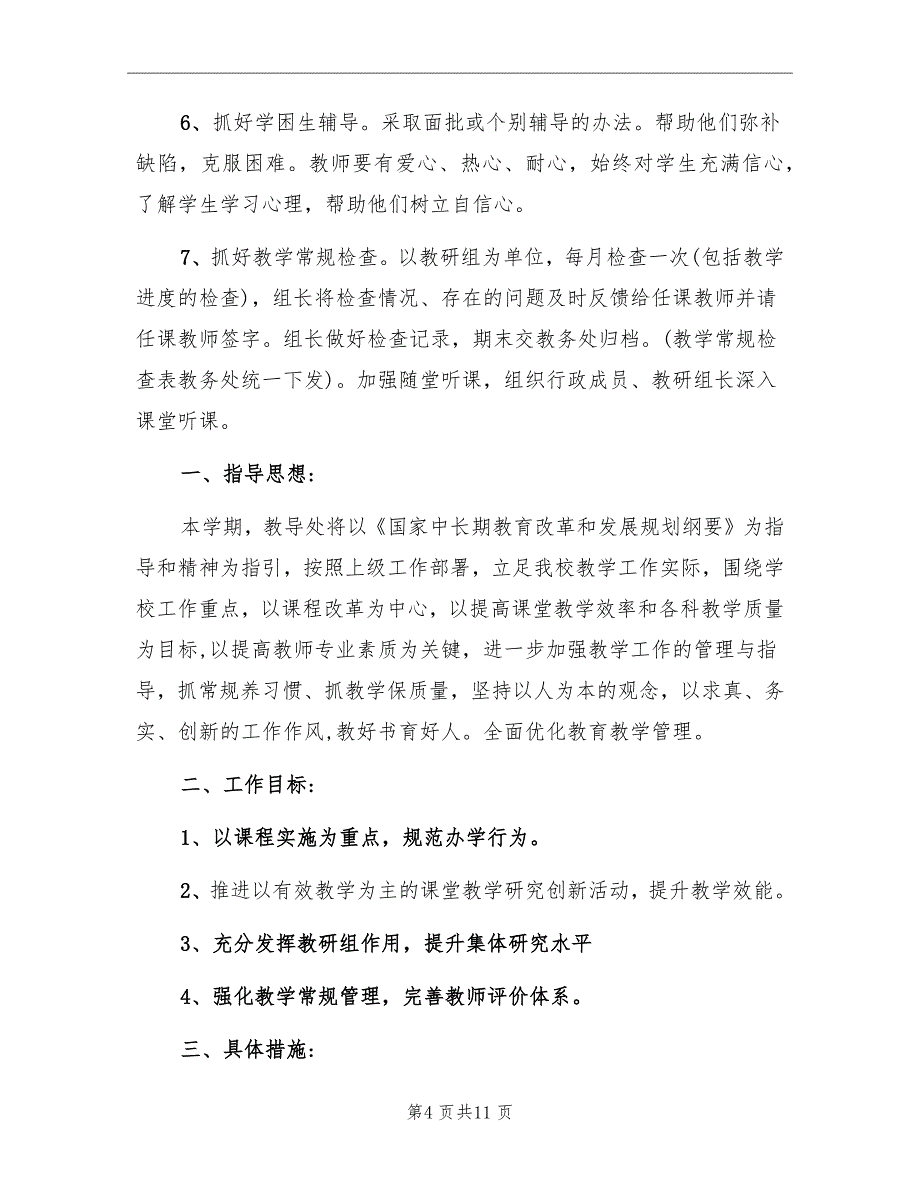 6、抓好学困生辅导。采取面批或个别辅导的办法。帮助他们弥补
缺陷，克服困难。教师要有爱心、热心、耐心，始终对学生充满信心，
了解学生学习心理，帮助他们树立自信心。
7、抓好教学常规检查。以教研组为单位，每月检查一次(包括教学
进度的检查)，组长将检查情况、存在的问题及时反馈给任课教师并请
任课教师签字。组长做好检查记录，期末交教务处归档。(教学常规检
查表教务处统一下发)。加强随堂听课，组织行政成员、教研组长深入
课堂听课。
一、指导思想:
本学期，教导处将以《国家中长期教育改革和发展规划纲要》为指
导和精神为指引，按照上级工作部署，立足我校教学工作实际，围绕学
校工作重点，以课程改革为中心，以提高课堂教学效率和各科教学质量
为目标,以提高教师专业素质为关键，进一步加强教学工作的管理与指
导，抓常规养习惯、抓教学保质量，坚持以人为本的观念，以求真、务
实、创新的工作作风,教好书育好人。全面优化教育教学管理。
二、工作目标:
1、以课程实施为重点，规范办学行为。
2、推进以有效教学为主的课堂教学研究创新活动，提升教学效能。
3、充分发挥教研组作用，提升集体研究水平
4、强化教学常规管理，完善教师评价体系。
三、具体措施:
第4 页共11 页